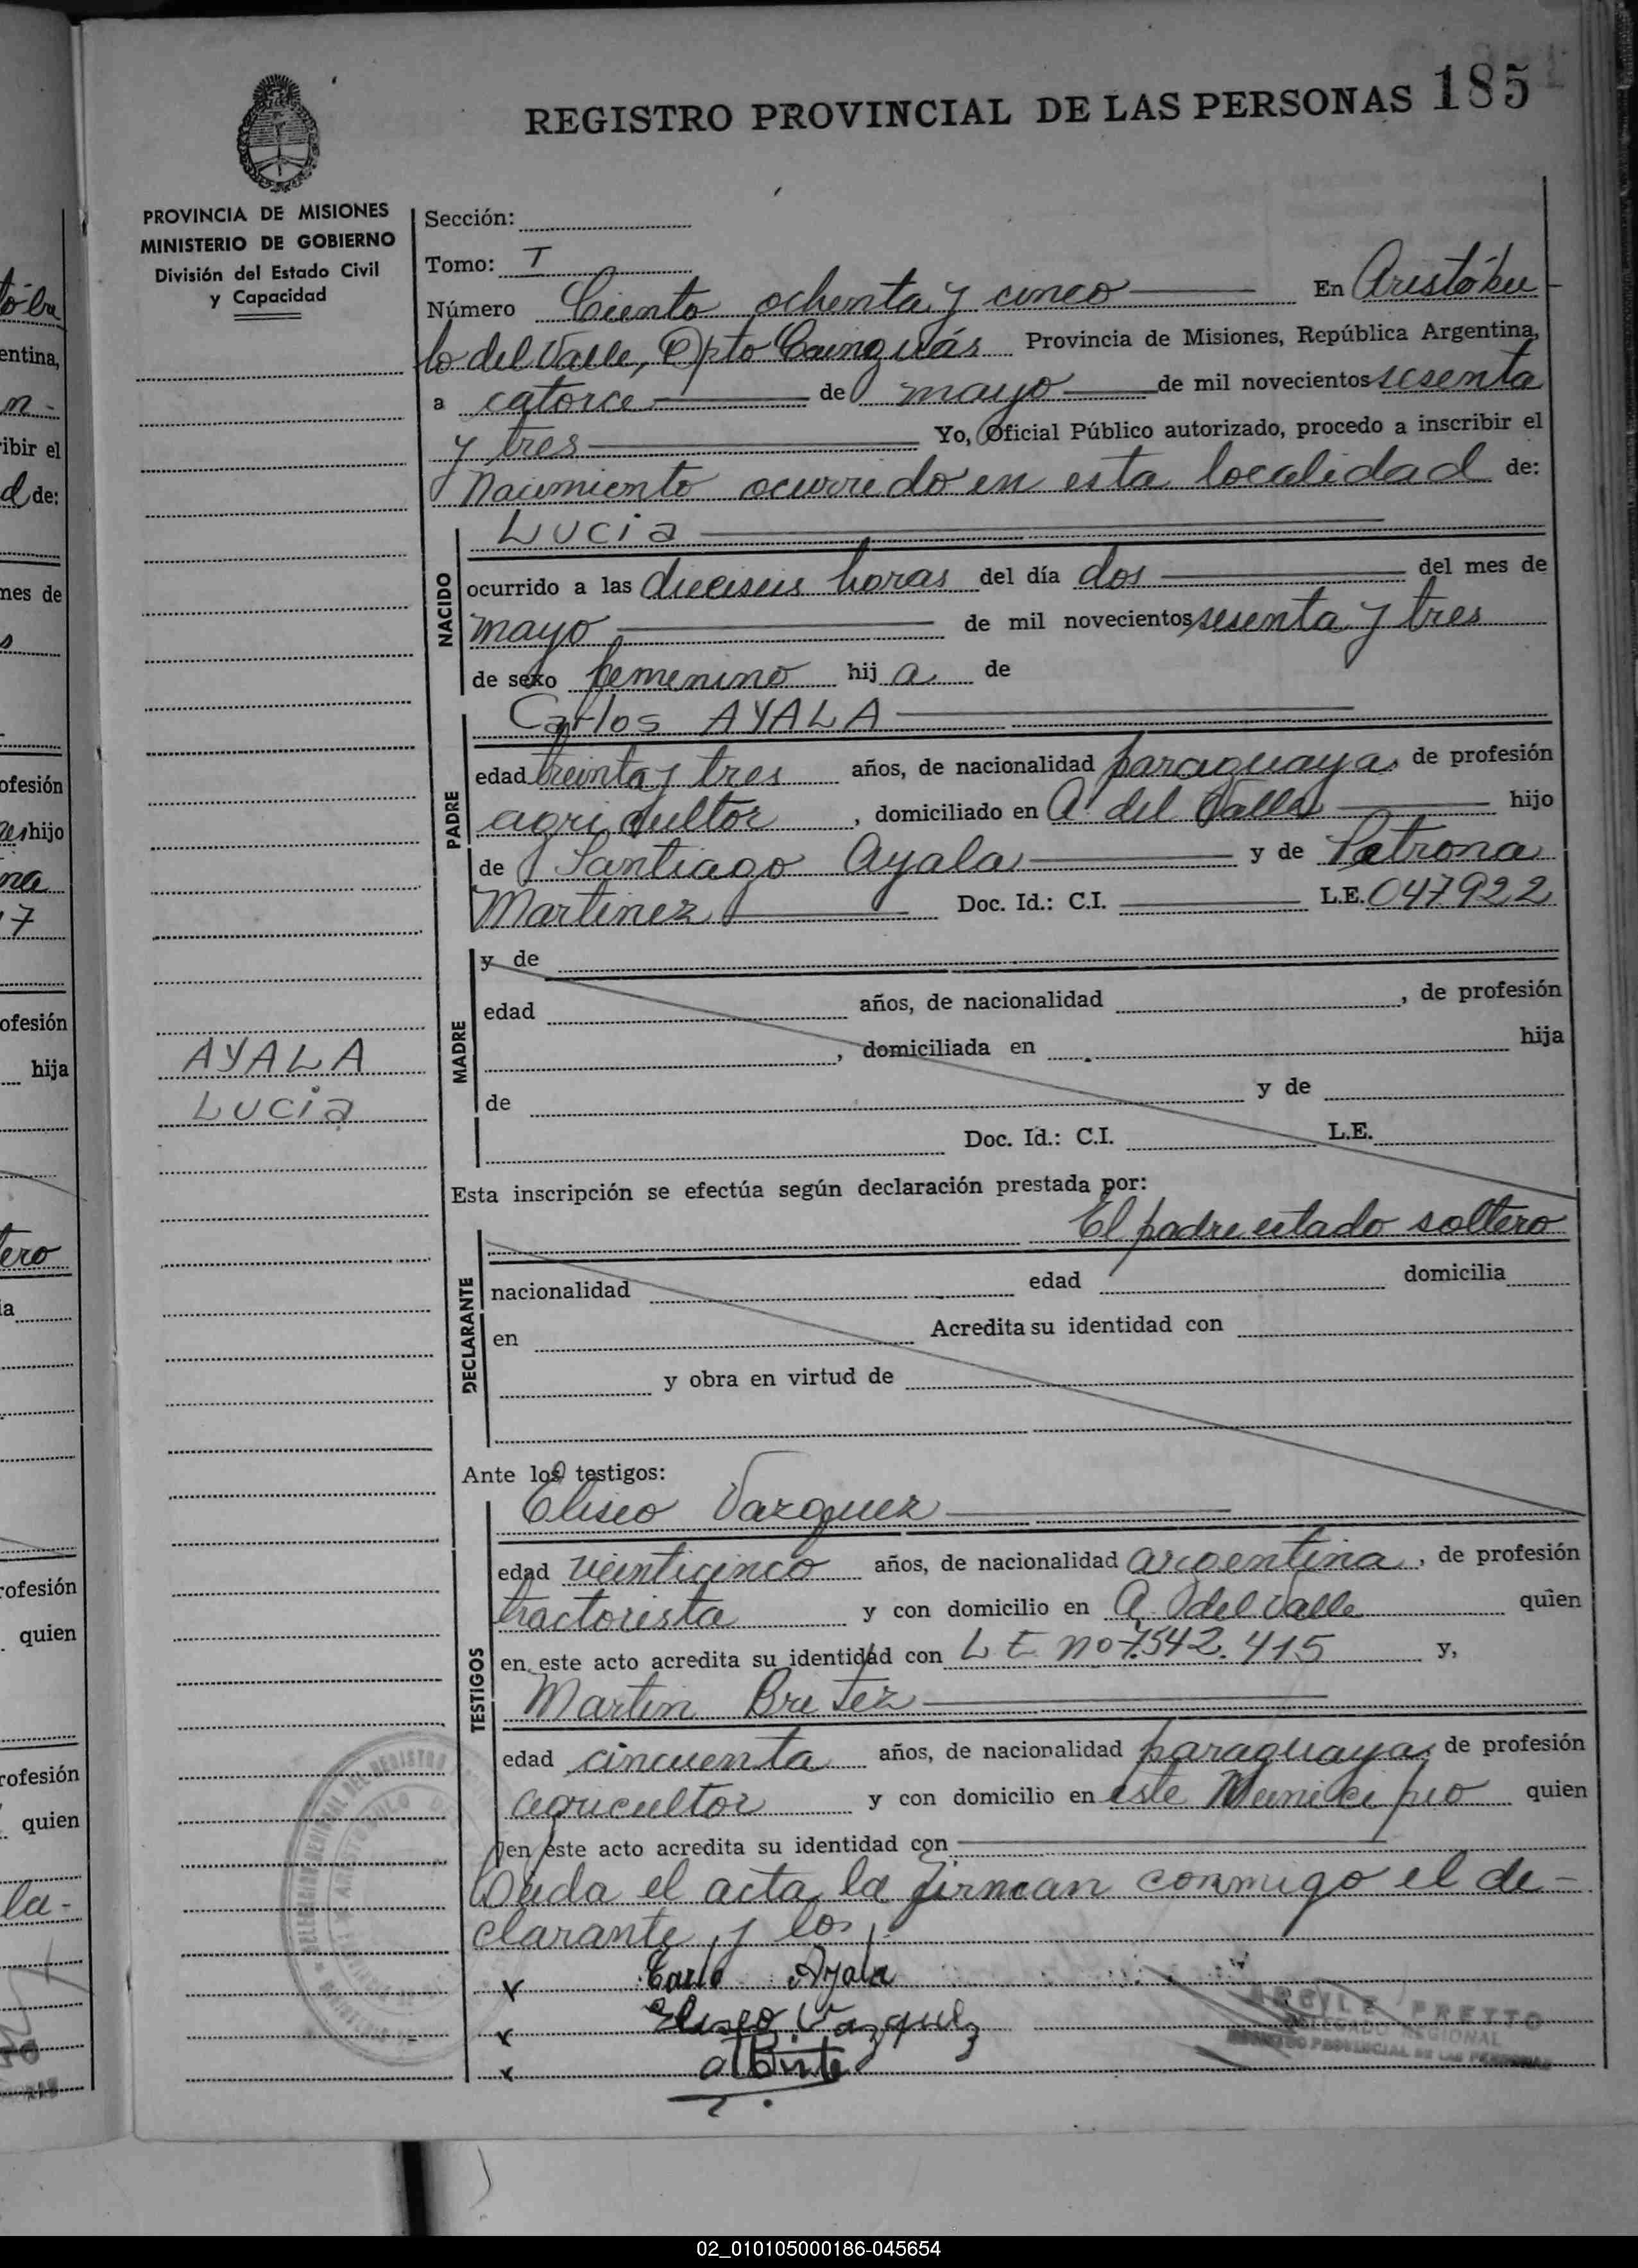 REGISTRO PROVINCIAL DE LAS PERSONAS 185
PROVINCIA DE MISIONES
MINISTERIO DE GOBIERNO
División del Estado Civil
y Capacidad
Sección:
Tomo: I
Número Ciento ochenta y cinco En Aristóbu
lo del Valle, Dpto Cainguás Provincia de Misiones, República Argentina,
a catorce de mayo de mil novecientos sesenta
y tres Yo, Oficial Público autorizado, procedo a inscribir el
Nacimiento ocurrido en esta localidad de:
NACIDO
Lucia
ocurrido a las dieciseis horas del día dos del mes de
mayo de mil novecientos sesenta y tres
de sexo femenino hij a de
PADRE
Carlos AYALA
edad treinta y tres años, de nacionalidad paraguaya, de profesión
agricultor, domiciliado en A. del Valle hijo
de Santiago Ayala y de Petrona
Martinez Doc. Id.: C.I. L.E. 047922
MADRE
y de
edad años, de nacionalidad , de profesión
, domiciliada en hija
de y de
Doc. Id.: C.I. L.E.
AYALA
Lucia
Esta inscripción se efectúa según declaración prestada por:
El padre estado soltero
DECLARANTE
nacionalidad edad domicilia
en Acredita su identidad con
y obra en virtud de
Ante los testigos:
TESTIGOS
Eliseo Vazquez
edad veinticinco años, de nacionalidad argentina, de profesión
tractorista y con domicilio en A. del Valle quien
en este acto acredita su identidad con L E no 7.542.415 y,
Martin Britez
edad cincuenta años, de nacionalidad paraguaya, de profesión
agricultor y con domicilio en este Municipio quien
en este acto acredita su identidad con
Leida el acta, la firman conmigo el de-
clarante y los
x Carlo Ayala
x Eliseo Vazquez
x
ARGILE PRETTO
DELEGADO REGIONAL
REGISTRO PROVINCIAL DE LAS PERSONAS
02_010105000186-045654